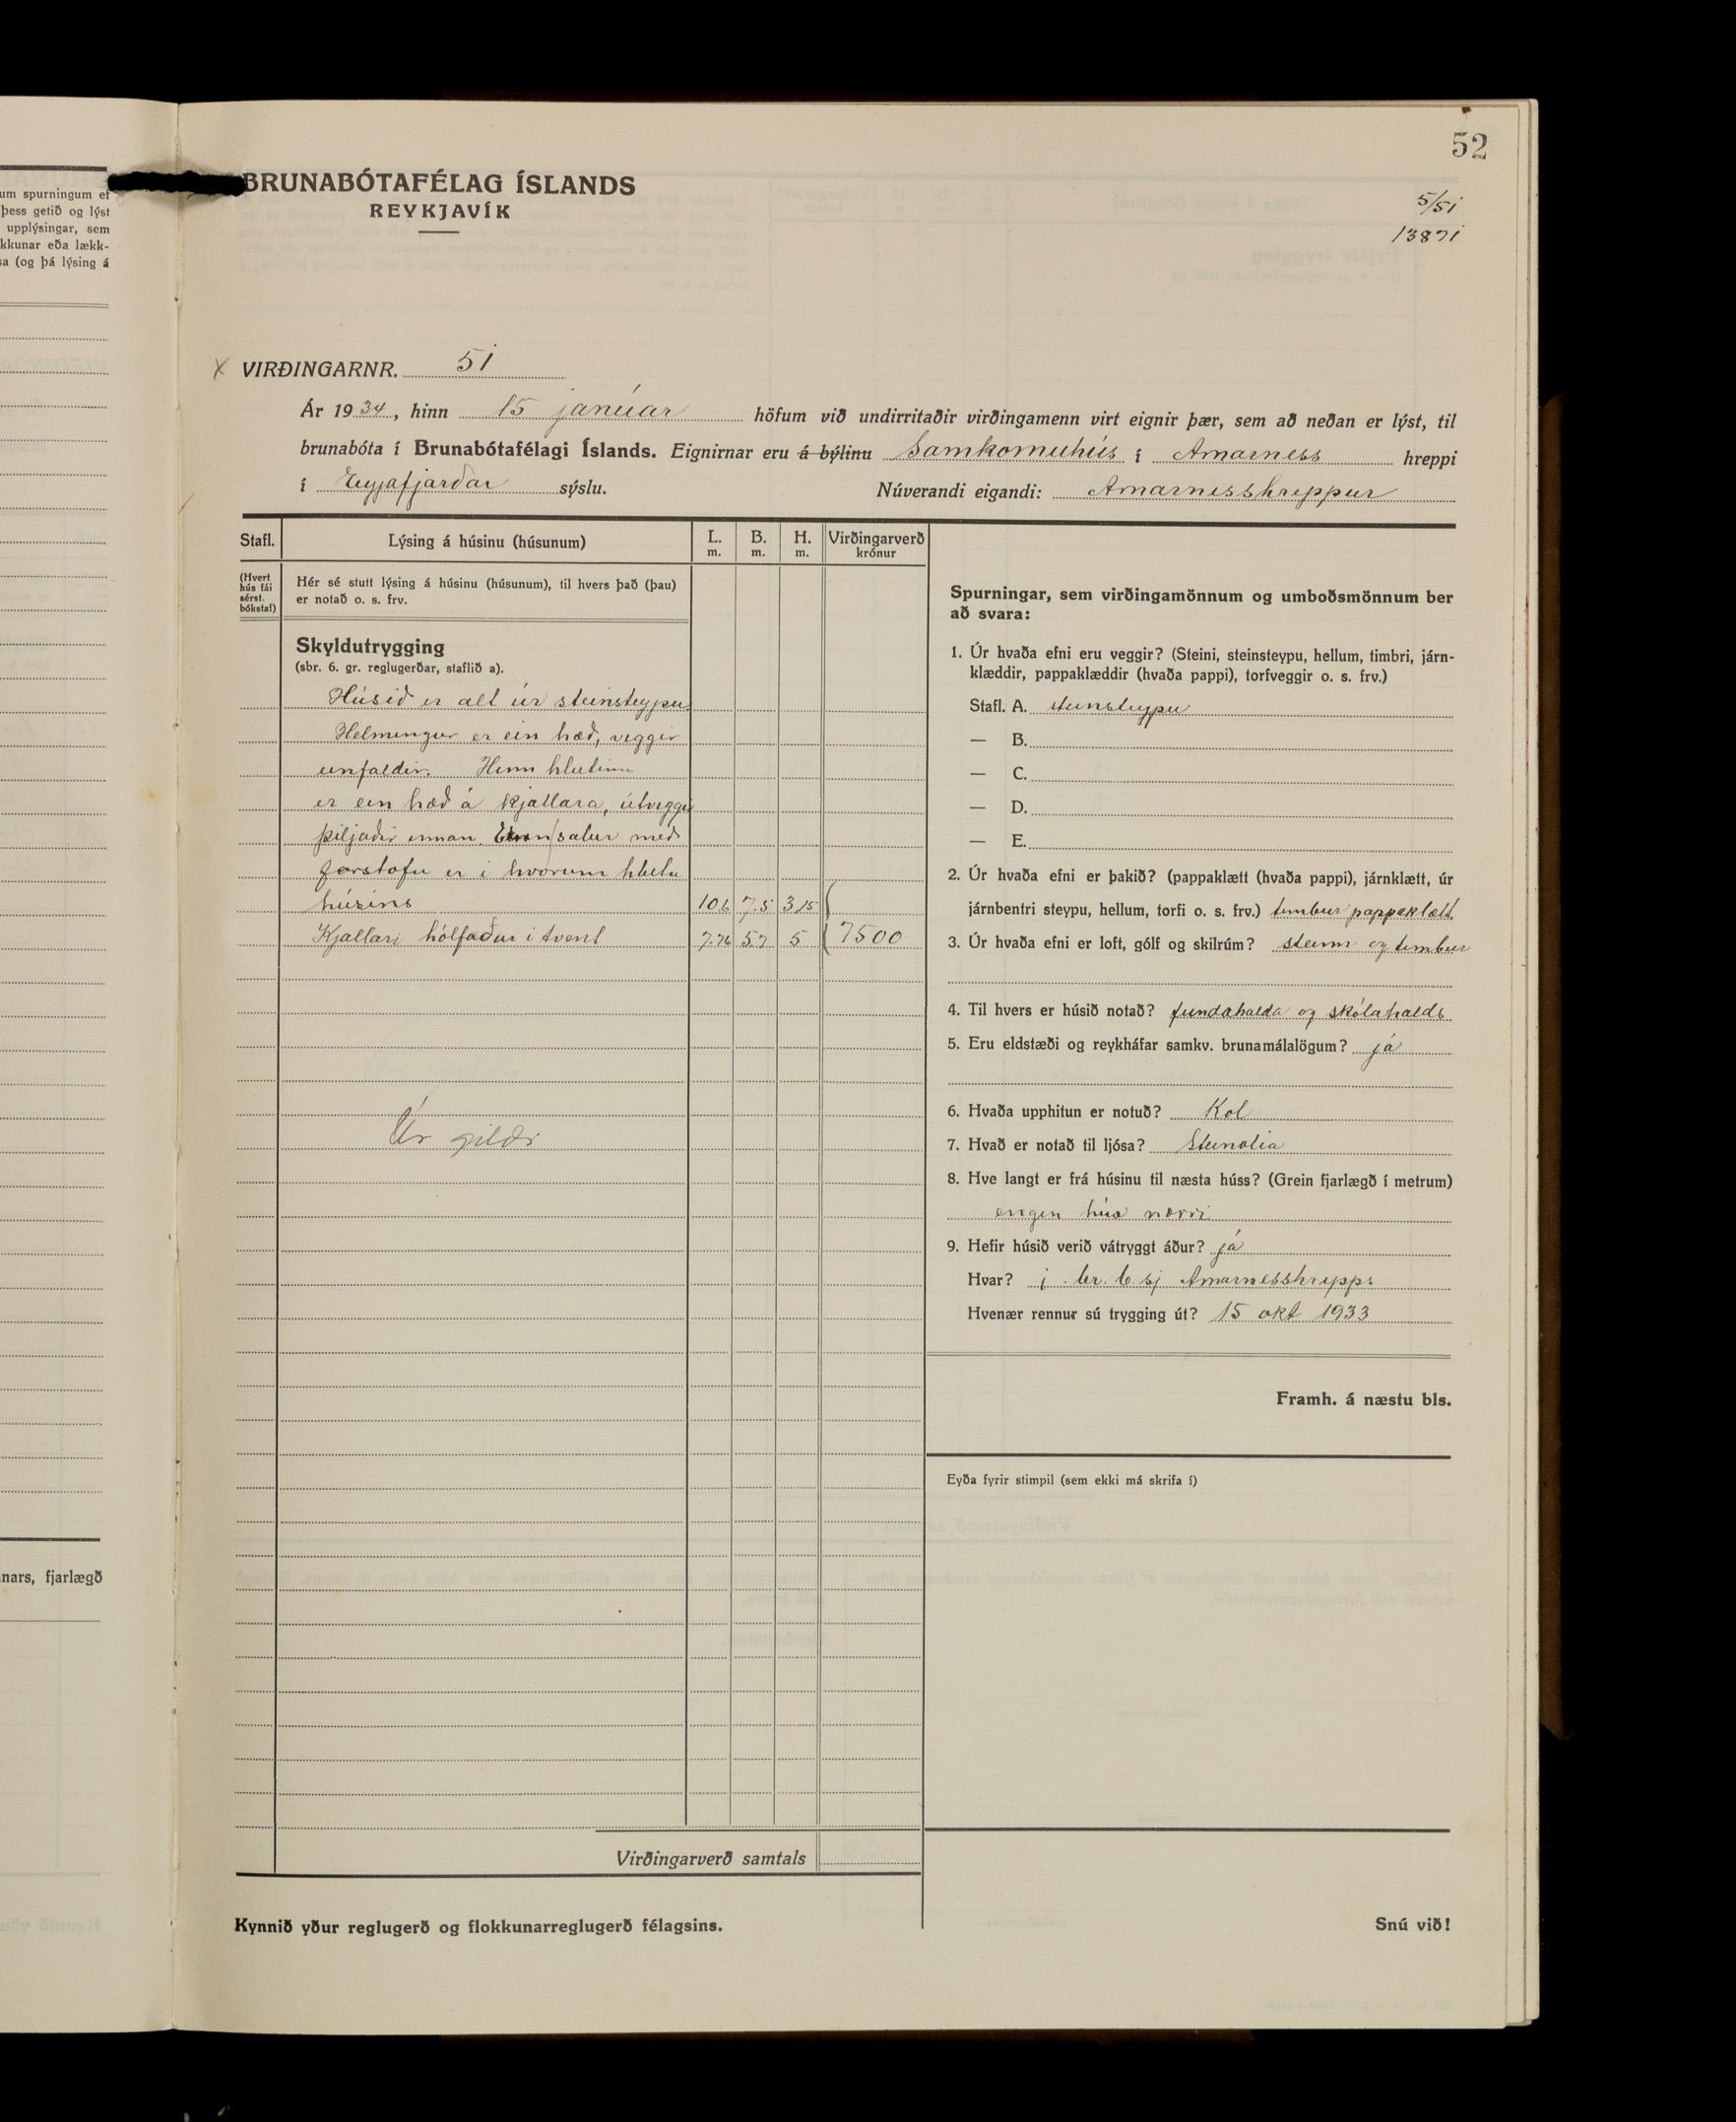 um spurningum ef
þess getið og lýst
upplýsingar, sem
kkunar eða lækk-
sa (og þá lýsing á
nars, fjarlægð
52
BRUNABÓTAFÉLAG ÍSLANDS
REYKJAVÍK
5/51
13871
X VIRÐINGARNR. 51
Ár 1934, hinn 15 janúar höfum við undirritaðir virðingamenn virt eignir þær, sem að neðan er lýst, til
brunabóta í Brunabótafélagi Íslands. Eignirnar eru á býlinu Samkomuhús í Arnarness hreppi
í Eyjafjarðar sýslu. Núverandi eigandi: Arnarnesshreppur
Stafl. Lýsing á húsinu (húsunum) L. m. B. m. H. m. Virðingarverð krónur
(Hvert hús fái sérst. bókstaf)
Hér sé stutt lýsing á húsinu (húsunum), til hvers það (þau)
er notað o. s. frv.
Skyldutrygging
(sbr. 6. gr. reglugerðar, staflið a).
Húsið er alt úr steinsteypu
Helmingur er ein hæð, veggir
einfaldir. Hinn hlutinn
er ein hæð á kjallara, útveggir
þiljaðir innan. salur með
forstofu er i hvorum hluta
húsins 10.6 7.5 3.15
Kjallari hólfaður i tvent 7.76 5.7 5 7500
Úr gildi
Virðingarverð samtals
Kynnið yður reglugerð og flokkunarreglugerð félagsins.
Spurningar, sem virðingamönnum og umboðsmönnum ber
að svara:
1. Úr hvaða efni eru veggir? (Steini, steinsteypu, hellum, timbri, járn-
klæddir, pappaklæddir (hvaða pappi), torfveggir o. s. frv.)
Stafl. A. steinsteypu
— B.
— C.
— D.
— E.
2. Úr hvaða efni er þakið? (pappaklætt (hvaða pappi), járnklætt, úr
járnbentri steypu, hellum, torfi o. s. frv.) timbur pappaklætt
3. Úr hvaða efni er loft, gólf og skilrúm? steinn og timbur
4. Til hvers er húsið notað? fundahalda og skólahalds
5. Eru eldstæði og reykháfar samkv. brunamálalögum? já
6. Hvaða upphitun er notuð? Kol
7. Hvað er notað til ljósa? Steinolia
8. Hve langt er frá húsinu til næsta húss? (Grein fjarlægð í metrum)
engin hús nærri
9. Hefir húsið verið vátryggt áður? já
Hvar? i br. b. sj Arnarnesshrepps
Hvenær rennur sú trygging út? 15 okt 1933
Framh. á næstu bls.
Eyða fyrir stimpil (sem ekki má skrifa í)
Snú við!